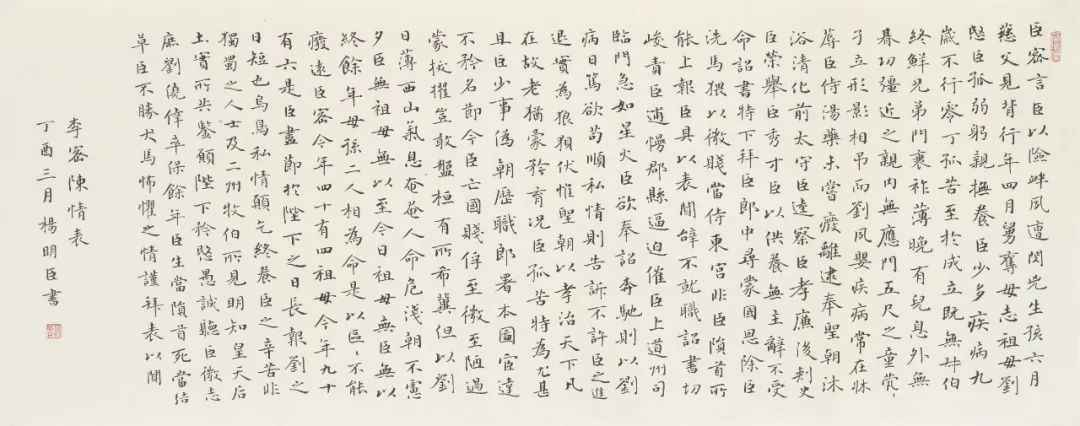 臣密言臣以險衅夙遭閔兇生孩六月
慈父見背行年四月舅奪母志祖母劉
愍臣孤弱躬親撫養臣少多疾病九
歲不行零丁孤苦至於成立既無叔伯
終鮮兄弟門衰祚薄晚有兒息外無
朞功彊近之親內無應門五尺之童煢〻
孑立形影相吊而劉夙嬰疾病常在牀
蓐臣侍湯藥未嘗廢離逮奉聖朝沐
浴清化前太守臣逵察臣孝廉後刺史
臣榮舉臣秀才臣以供養無主辭不受
命詔書特下拜臣郎中尋蒙國恩除臣
洗馬猥以微賤當侍東宮非臣隕首所
能上報臣具以表聞辭不就職詔書切
峻責臣逋慢郡縣逼迫催臣上道州司
臨門急如星火臣欲奉詔奔馳則以劉
病日篤欲苟順私情則告訴不許臣之進
退實為狼狽伏惟聖朝以孝治天下凡
在故老猶蒙矜育況臣孤苦特為尤甚
且臣少事偽朝歷職郎署本圖宦達
不矜名節今臣亡國賤俘至微至陋過
蒙拔擢豈敢盤桓有所希冀但以劉
日薄西山氣息奄奄人命危淺朝不慮
夕臣無祖母無以至今日祖母無臣無以
終餘年母孫二人相為命是以區〻不能
廢遠臣密今年四十有四祖母今年九十
有六是臣盡節於陛下之日長報劉之
日短也烏鳥私情願乞終養臣之辛苦非
獨蜀之人士及二州牧伯所見明知皇天后
土實所共鑒願陛下矜愍愚誠聽臣微志
庶劉僥倖卒保餘年臣生當隕首死當結
草臣不勝犬馬怖懼之情謹拜表以聞
李密陳情表
丁酉三月楊明臣書